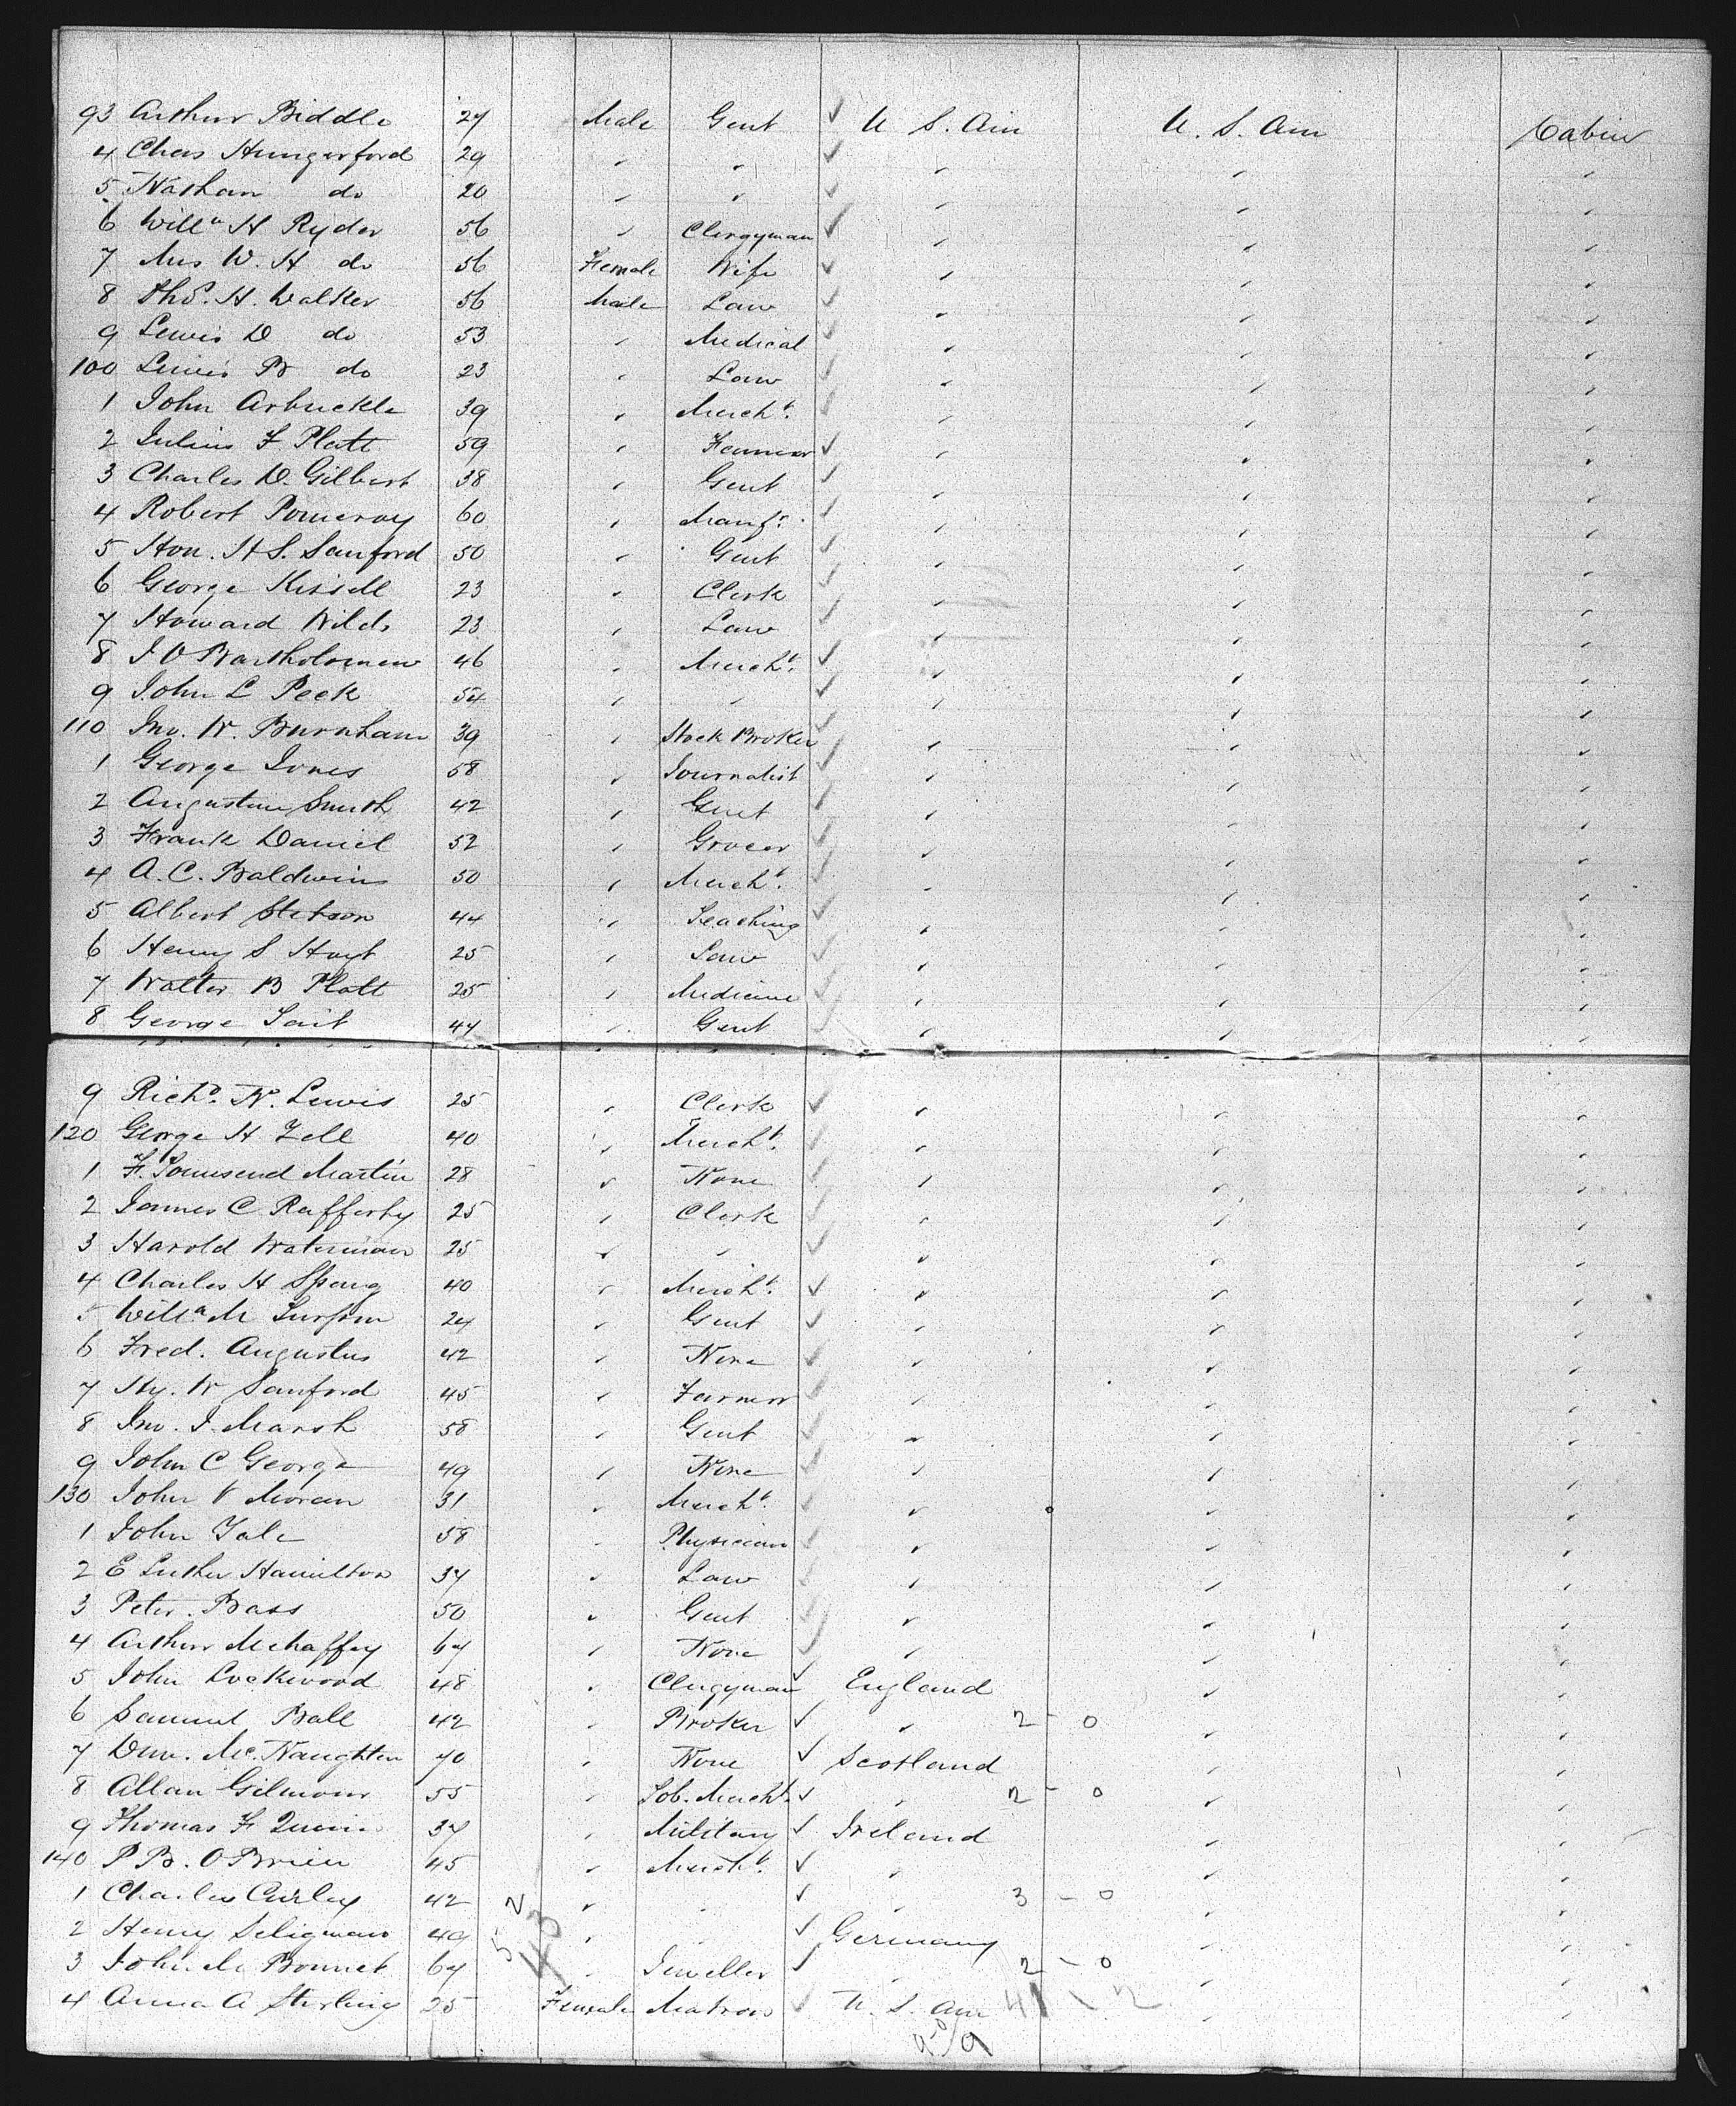 93 Arthur Biddle 27 Male Gent ✓ U S. Am U. S. Am Cabin
4 Chas Hungerford 29 " " ✓ " " "
5 Nathan do 20 " " ✓ " " "
6 Willm H Ryder 56 " Clergyman ✓ " " "
7 Mrs W. H do 56 Female Wife ✓ " " "
8 Thos. H. Walker 56 Male Law ✓ " " "
9 Lewis D do 53 " Medical ✓ " " "
100 Lewis B do 23 " Law ✓ " " "
1 John Arbuckle 39 " Mercht. ✓ " " "
2 Julius F Platt 59 " Farmer ✓ " " "
3 Charles D. Gilbert 38 " Gent ✓ " " "
4 Robert Pomeroy 60 " Manfr. ✓ " " "
5 Hon. H S. Sanford 50 " Gent ✓ " " "
6 George Kissell 23 " Clerk ✓ " " "
7 Howard Wilds 23 " Law ✓ " " "
8 J O Bartholomew 46 " Mercht. ✓ " " "
9 John L Peek 54 " " ✓ " " "
110 Jno. W. Burnham 39 " Stock Broker ✓ " " "
1 George Jones 58 " Journalist ✓ " " "
2 Augustine Smith 42 " Gent ✓ " " "
3 Frank Daniel 52 " Grocer ✓ " " "
4 A. C. Baldwin 50 " Mercht. ✓ " " "
5 Albert Stetson 44 " Teaching ✓ " " "
6 Henry S Hoyt 25 " Law ✓ " " "
7 Walter B Platt 25 " Medicine ✓ " " "
8 George Tait 47 " Gent ✓ " " "
9 Richd. N. Lewis 25 " Clerk ✓ " " "
120 George H Zell 40 " Mercht. ✓ " " "
1 F. Townsend Martin 28 " None ✓ " " "
2 James C Rafferty 25 " Clerk ✓ " " "
3 Harold Waterman 25 " " ✓ " " "
4 Charles H Spang 40 " Mercht. ✓ " " "
5 Willm M 24 " Gent ✓ " " "
6 Fred. Augustus 42 " None ✓ " " "
7 Hy. W Sanford 45 " Farmer ✓ " " "
8 Jno. J. Marsh 58 " Gent ✓ " " "
9 John C George 49 " None ✓ " " "
130 John V Moran 31 " Mercht. ✓ " " "
1 John Yale 58 " Physician ✓ " " "
2 E Luther Hamilton 37 " Law ✓ " " "
3 Peter Bass 50 " Gent ✓ " " "
4 Arthur Mehaffey 67 " None ✓ " " "
5 John Lockwood 48 " Clergyman ✓ England " "
6 Samuel Ball 42 " Broker ✓ " 2 - 0 " "
7 Dun. McNaughten 70 " None ✓ Scotland " "
8 Allan Gilmour 55 " Tob. Mercht. ✓ " 2 - 0 " "
9 Thomas F Quinn 37 " Military ✓ Ireland " "
140 P B. O'Brien 45 " Mercht. ✓ " " "
1 Charles Curley 42 " " ✓ " 3 - 0 " "
2 Henry Seligman 49 " " ✓ Germany " "
3 John M Bonnet 67 " Jeweller ✓ " 2 - 0 " "
4 Anna A Sterling 25 Female Matron ✓ U. S. Am 41 \ 2 " "
52
43
9-0/9